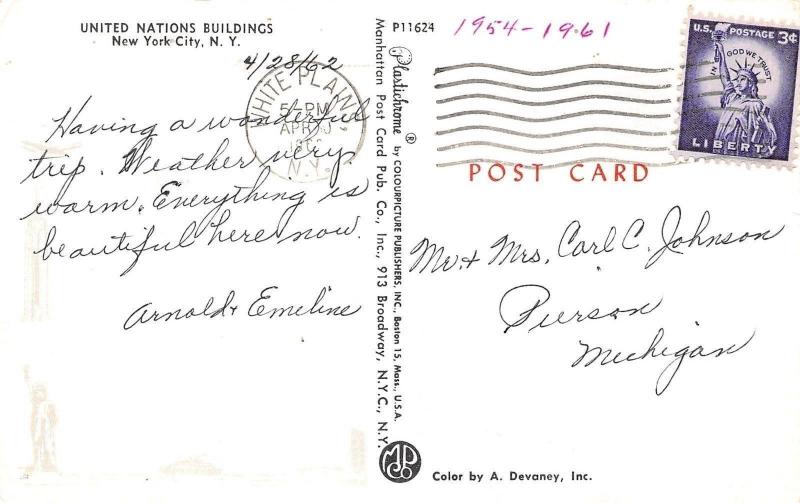 UNITED NATIONS BUILDINGS
New York City, N. Y.
4/28/62
Having a wonderful
trip. Weather very
warm. Everything is
beautiful here now.
Arnold + Emeline
WHITE PLAINS
5 - PM
APR 30
N.Y.
P11624
Plastichrome ® by COLOURPICTURE PUBLISHERS, INC., Boston 15, Mass., U.S.A.
Manhattan Post Card Pub. Co., Inc., 913 Broadway, N.Y.C., N.Y.
1954-1961
U.S. POSTAGE 3¢
IN GOD WE TRUST
LIBERTY
POST CARD
Mr. + Mrs. Carl C. Johnson
Pierson
Michigan
Color by A. Devaney, Inc.